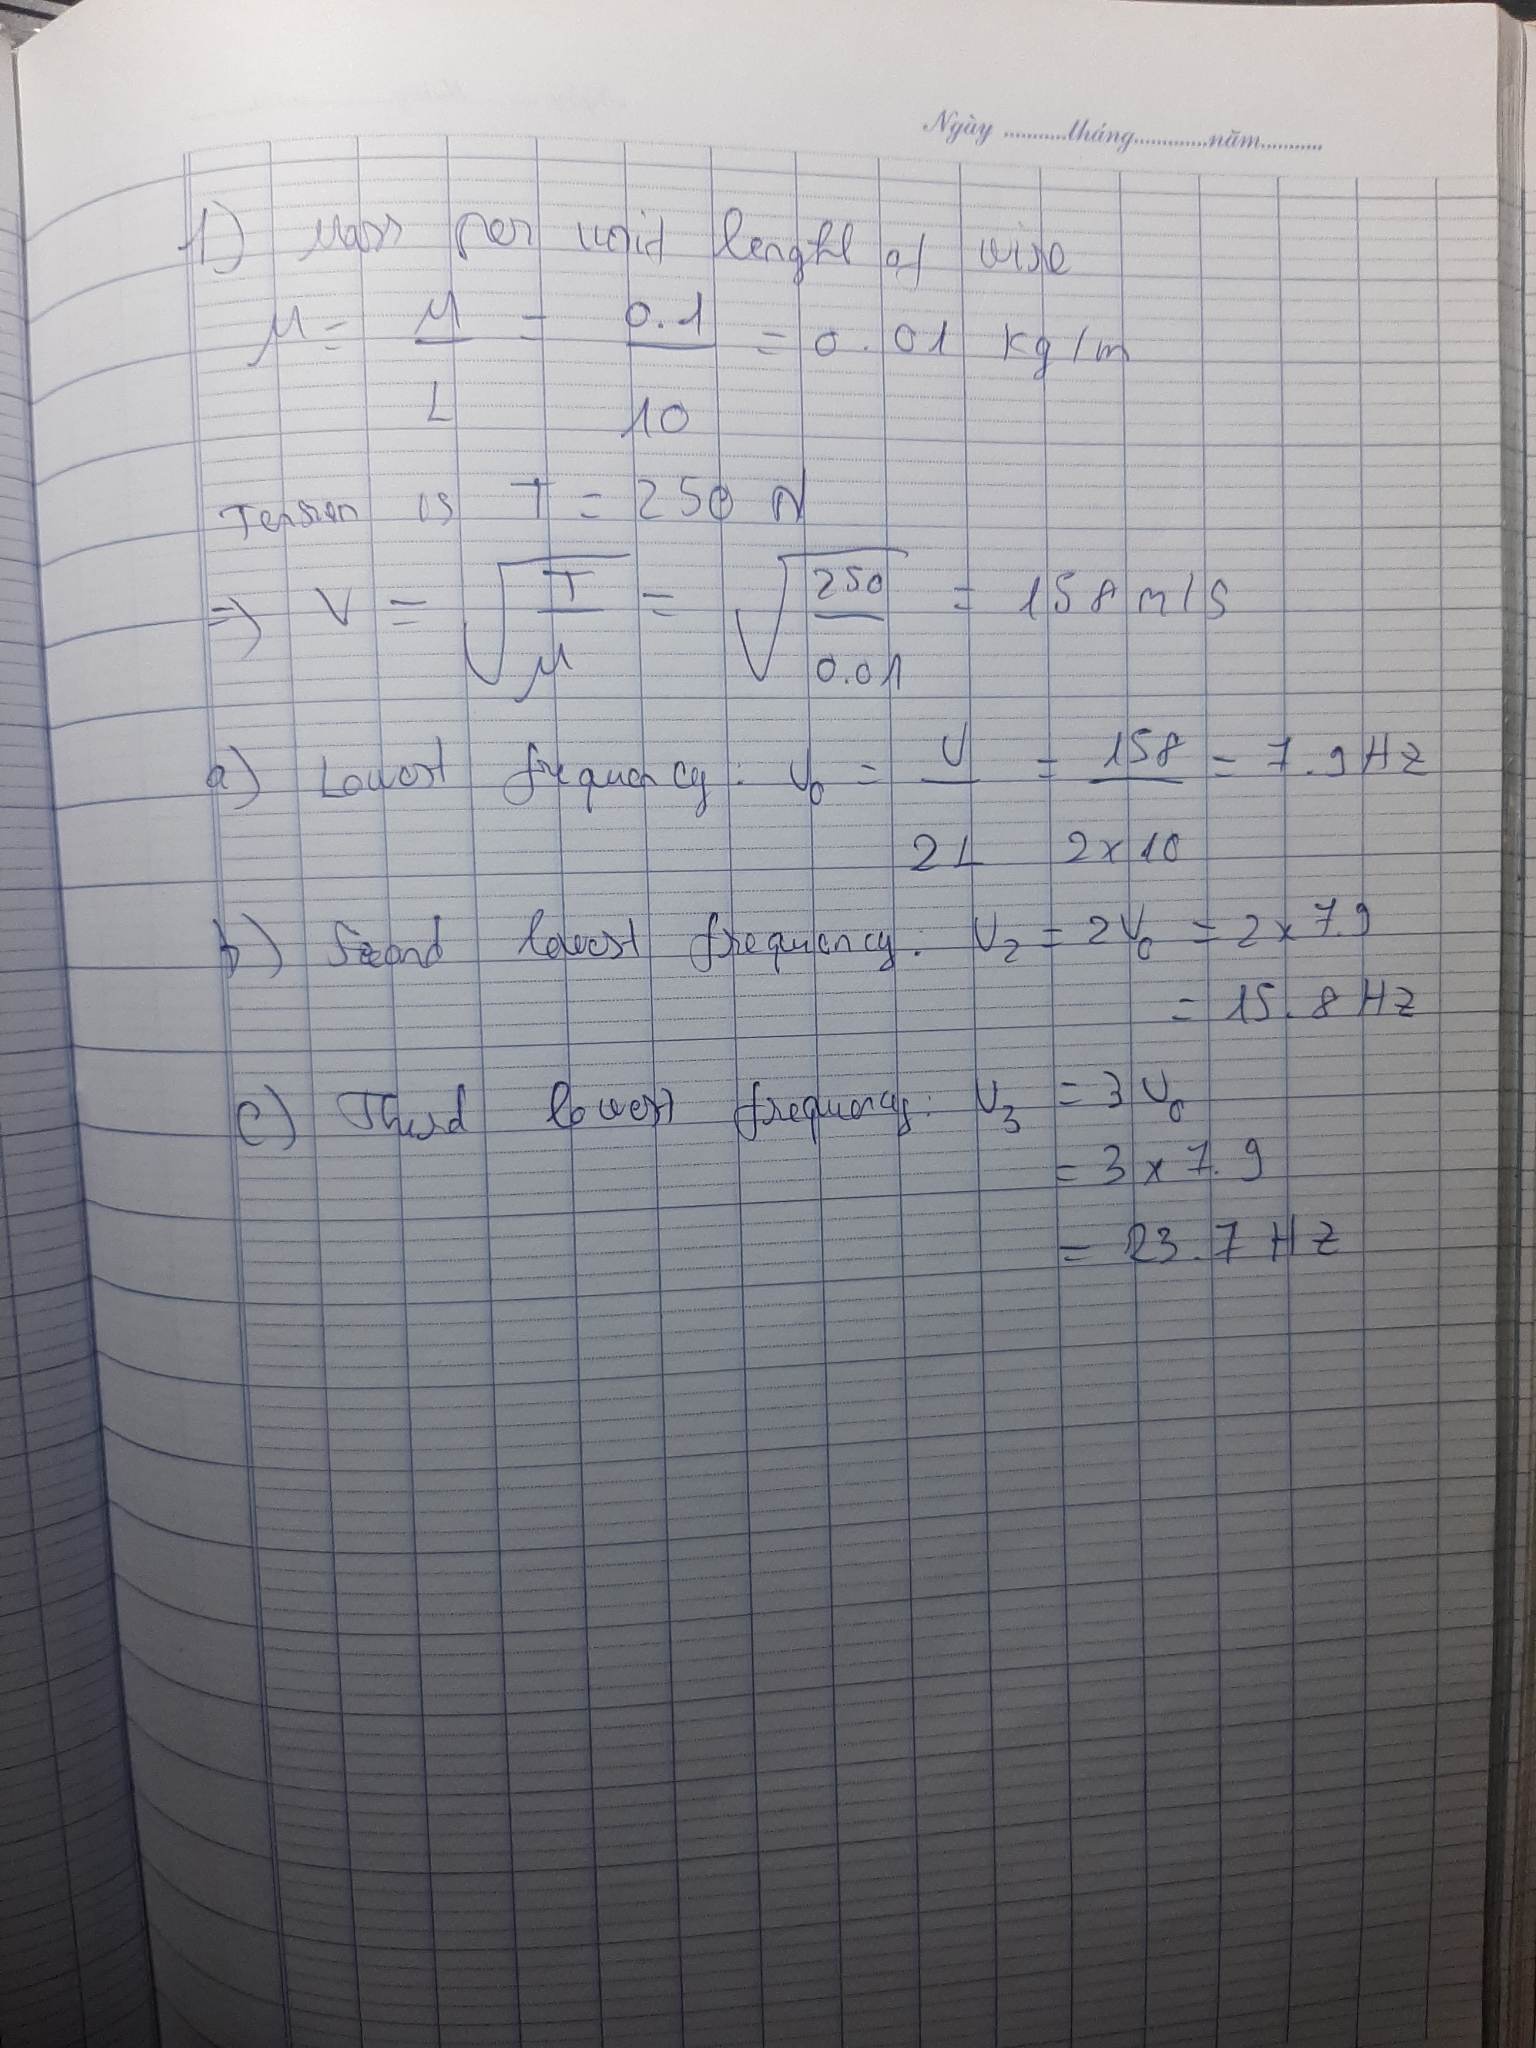 Ngày ...........tháng.............năm...........
1) Mass per unit lenght of wire
μ = M/L = 0.1/10 = 0.01 kg/m
Tension is T = 250 N
=> V = √(T/μ) = √(250/0.01) = 158 m/s
a) Lowest frequency: ν₀ = V/2L = 158/2x10 = 7.9 Hz
b) Second lowest frequency: ν₂ = 2ν₀ = 2 x 7.9
= 15.8 Hz
c) Third lowest frequency: ν₃ = 3ν₀
= 3 x 7.9
= 23.7 Hz